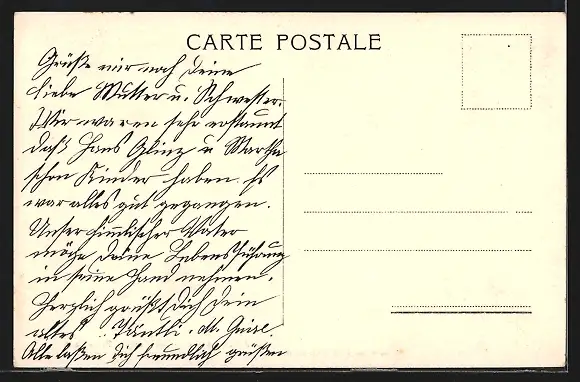 CARTE POSTALE
Grüße mir noch Deine
liebe Mutter u. Schwester.
Wir waren sehr erstaunt
daß Hans Glinz u Martha
schon Kinder haben. Es
war alles gut gegangen.
Unser himmlischer Vater
möge Deine Lebensführung
in seine Hand nehmen.
Herzlich grüßt Dich Dein
altes Täntli. M.
Alle laßen Dich freundlich grüßen